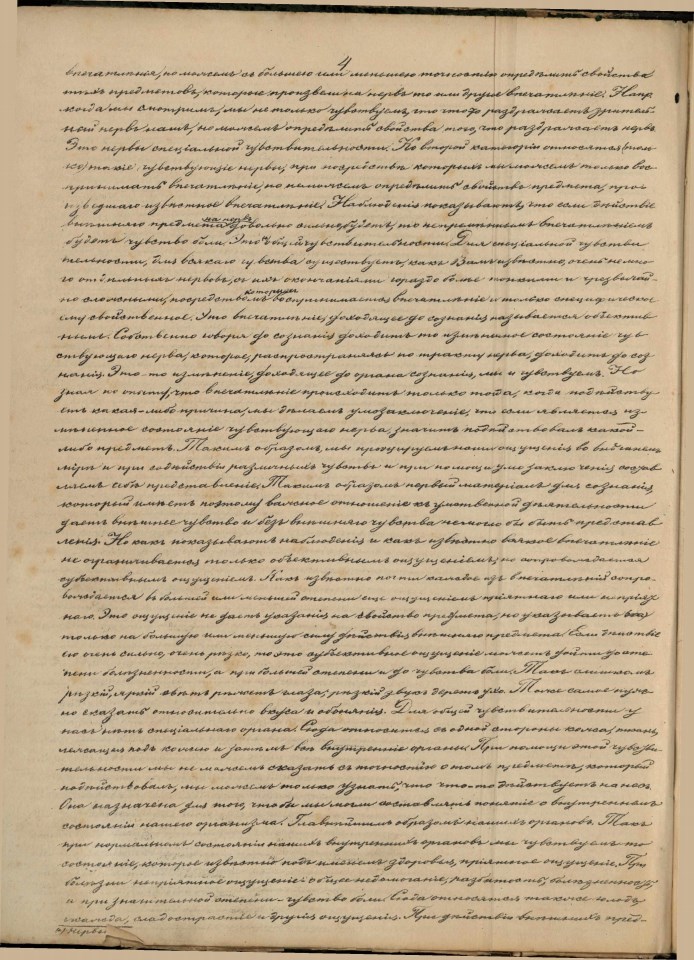 4
впечатлѣнія, но можемъ съ большею или меньшею точностію опредѣлить свойства
тѣхъ предметовъ, которые произвели на нервъ то или другое впечатлѣніе. Напр.
когда мы смотримъ, мы не только чувствуемъ, что что то раздражаетъ зритель-
ный нервъ намъ, но можемъ опредѣлить свойства того, что раздражаетъ нервъ.
Это нервы спеціальной чувствительности. Ко второй категоріи относятся
такіе чувствующіе нервы, при посредствѣ которыхъ мы можемъ только вос-
принимать впечатлѣніе, но не можемъ опредѣлить свойство предмета, прои-
зведшаго извѣстное впечатлѣніе. Наблюденія показываютъ, что если дѣйствіе
на нервъ
внѣшняго предмета довольно сильно будетъ, то непремѣннымъ впечатлѣніемъ
будетъ чувство боли. Это общ. чувствительности. Для спеціальной чувстви-
тельности, для всякаго чувства существуетъ, какъ Вамъ извѣстно, очень немно-
го отдѣльныхъ нервовъ, съ ихъ окончаніями гораздо болѣе тонкими и чрезвычай-
которыхъ
но сложными, посредствомъ воспринимается впечатлѣніе и только специфическое
ему свойственное. Это впечатлѣніе, доходящее до сознанія называется объектив-
нымъ. Собственно говоря до сознанія доходитъ то измѣненное состояніе чув-
ствующаго нерва, которое, распространяясь по тракту нерва, доходитъ до соз-
нанія. Это-то измѣненіе, доходящее до органа сознанія, мы и чувствуемъ. Но
зная по опыту, что впечатлѣніе происходитъ только тогда, когда подѣйству-
етъ какая-либо причина, мы дѣлаемъ умозаключеніе, что если является из-
мѣненное состояніе чувствующаго нерва, значитъ подѣйствовалъ какой-
либо предметъ. Такимъ образомъ, мы проецируемъ наши ощущенія во внѣшнемъ
мірѣ и при содѣйствіи различныхъ чувствъ и при помощи умозаключенія состав-
ляемъ себѣ представленіе. Такимъ образомъ первый матеріалъ для сознанія,
который имѣетъ поэтому важное отношеніе къ умственной дѣятельности
даетъ внѣшнее чувство и безъ внѣшняго чувства не могло бы быть представ-
ленія. Но какъ показываютъ наблюденія и какъ извѣстно всякое впечатлѣніе
не ограничивается только объективнымъ ощущеніемъ, но сопровождается
субъективнымъ ощущеніемъ. Какъ извѣстно почти каждое изъ впечатлѣній сопро-
вождается въ большей или меньшей степени еще ощущеніемъ пріятнаго или непріят-
наго. Это ощущеніе не даетъ указанія на свойство предмета, но указываетъ
только на большую или меньшую силу дѣйствія внѣшняго предмета. Если дѣйствіе
его очень сильно, очень рѣзко, то это субъективное ощущеніе можетъ дойти до сте-
пени болѣзненности, а при большей степени и до чувства боли. Такъ слишкомъ
рѣзкій, яркій свѣтъ рѣжетъ глаза, рѣзкій звукъ деретъ ухо. Тоже самое нуж-
но сказать относительно вкуса и обонянія. Для общей чувствительности у
насъ нѣтъ спеціальнаго органа. Сюда относится съ одной стороны кожа, ткань,
лежащая подъ кожею и затѣмъ всѣ внутренніе органы. При помощи этой чувстви-
тельности мы не можемъ сказать съ точностію о томъ предметѣ, который
подѣйствовалъ, мы можемъ только узнать, что что-то дѣйствуетъ на насъ.
Она назначена для того, чтобы мы могли составлять понятіе о внутреннемъ
состояніи нашего организма. Главнѣйшимъ образомъ нашихъ органовъ. Такъ
при нормальномъ состояніи нашихъ внутреннихъ органовъ мы чувствуемъ то
состояніе, которое извѣстно подъ именемъ здоровья, пріятное ощущеніе. При
болѣзни непріятное ощущеніе: общее недомоганіе, разбитость, болѣзненность,
а при значительной степени - чувство боли. Сюда относятся также голодъ,
жажда, сладострастіе и другія ощущенія. При дѣйствіи внѣшнихъ пред-
*) нервы